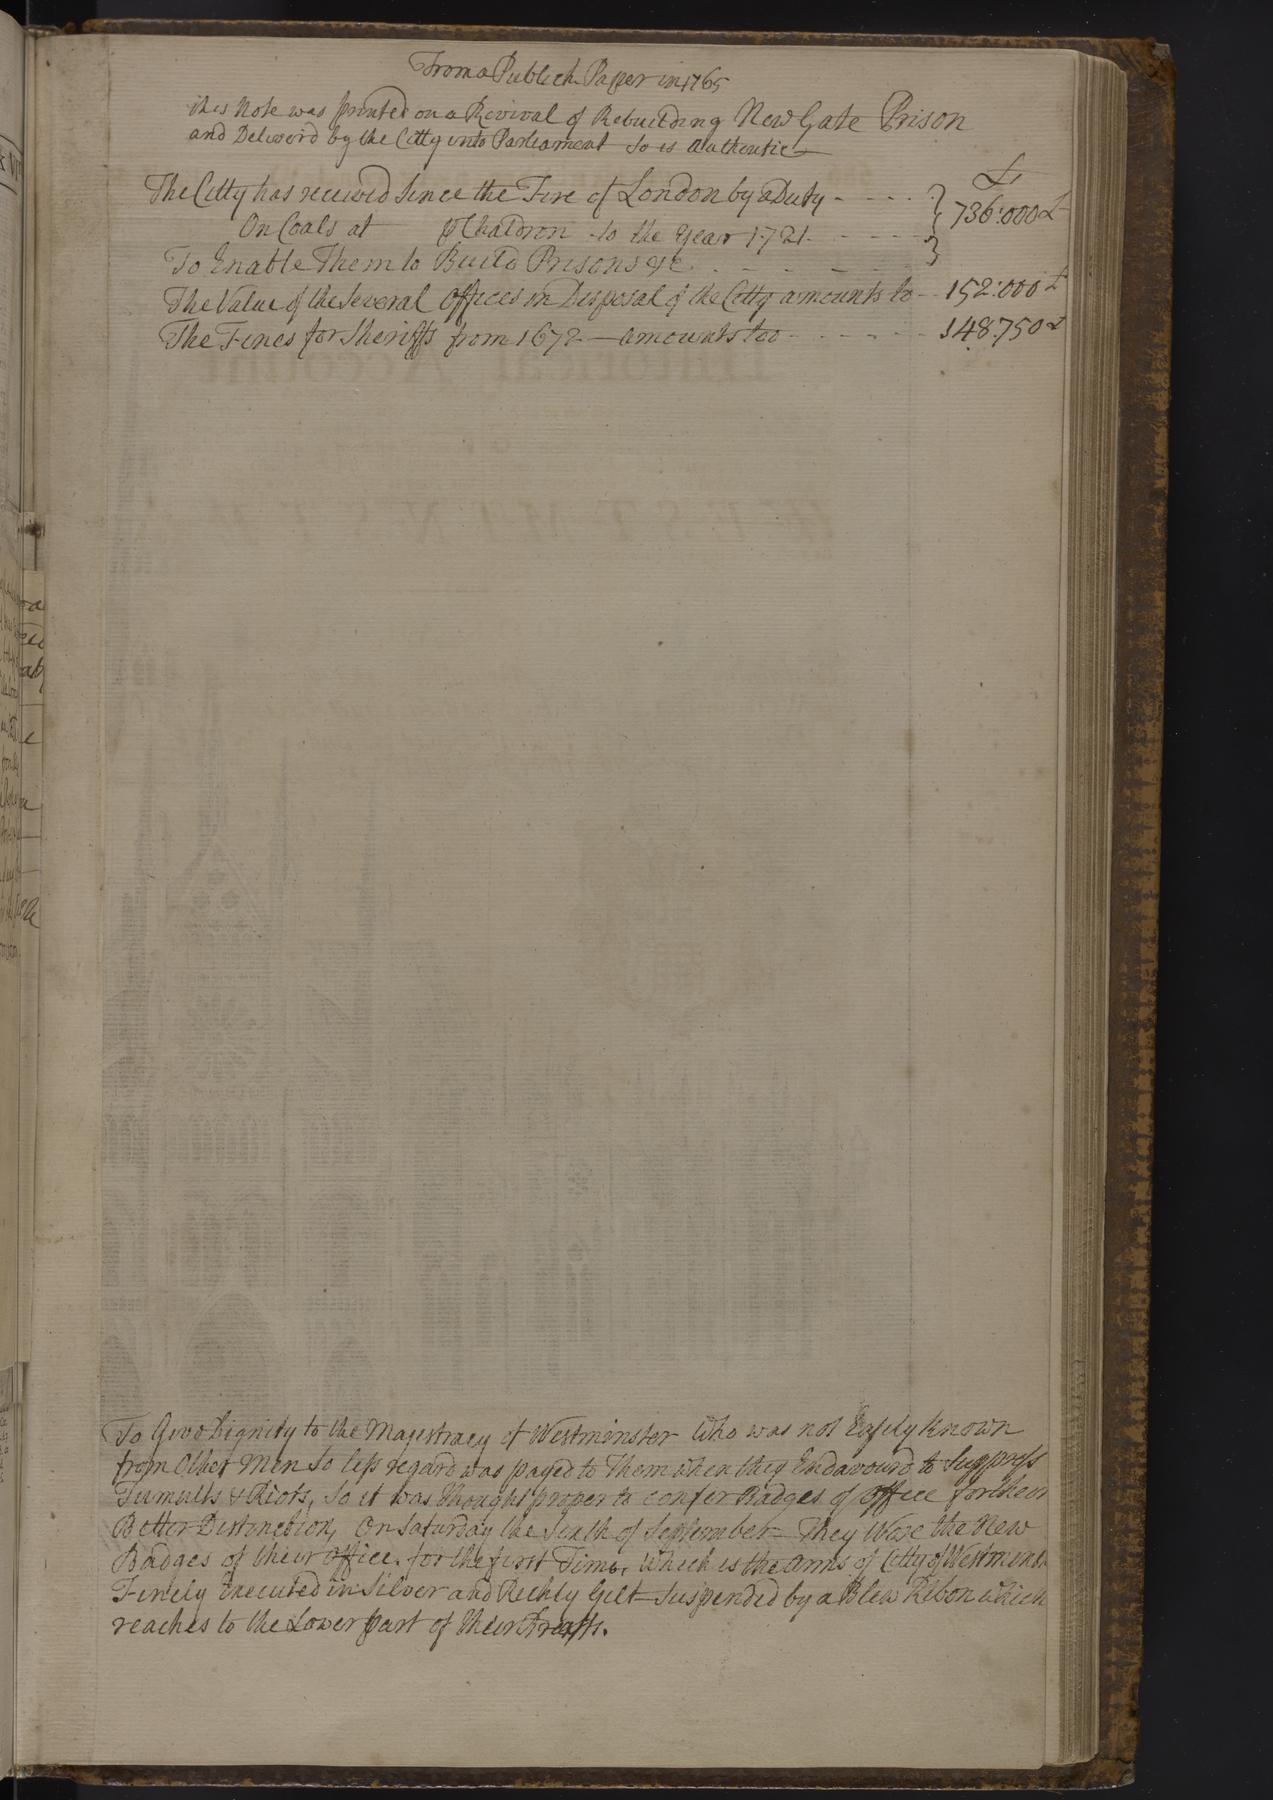 From a Publick Paper in 1765
this Note was printed on a Revival of Rebuilding New Gate Prison
and Deliverd by the Citty into Parleament So is authentic
£
The Citty has received Since the Fire of London by a Duty - - - - 736:000£
On Coals at ⅌ Chaldron to the Year 1721 - - - -
To Enable Them to Build Prisons &c - - - - -
The Value of the Several Offices in Disposal of the Citty amounts to - - 152:000£
The Fines for Sheriffs from 1672 — amounts too - - - - - 148:750£
To Give Dignity to the Magestracy of Westminster Who was not Easely known
from Other Men So less regard was payed to Them when they Endavourd to Suppress
Tumults & Riots, So it was thought proper to confer Badges of office for their
Better Distinction, On Saturday the Tenth of September They Wore the New
Badges of their office. for the first Time, Which is the arms of Citty of Westminst
Finely Executed in Silver and Richly Gilt Suspended by a Blew Ribon which
reaches to the Lower part of their Breasts.